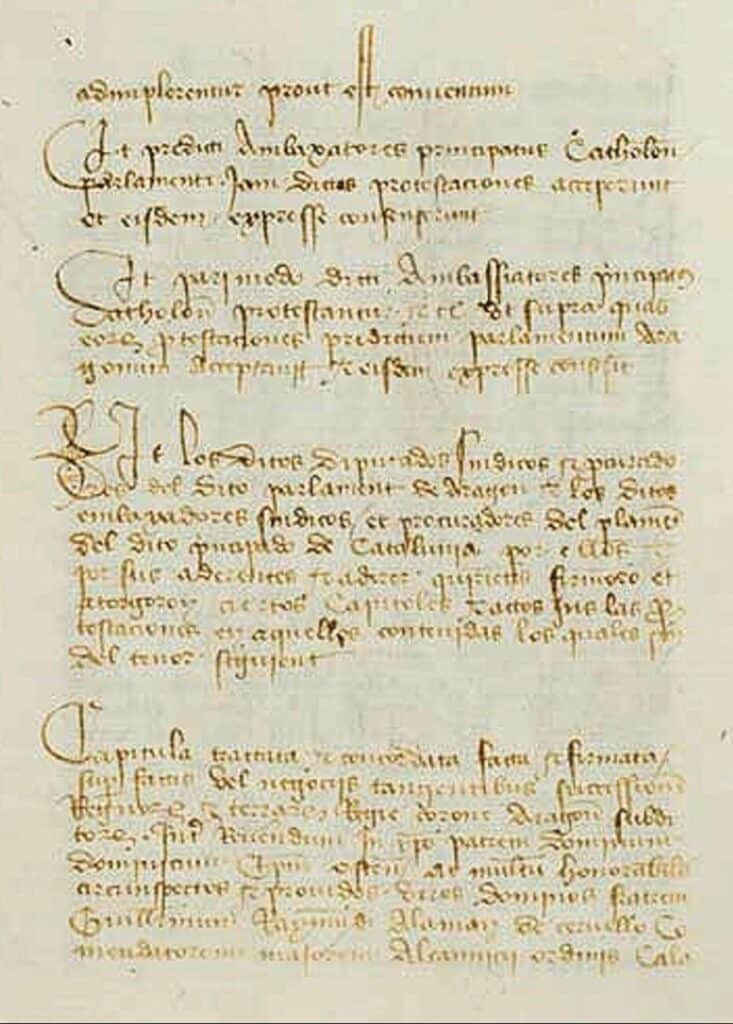 adimplerentur prout est conventum
Et predicti Ambaxatores principatus Catholon
parlamenti Jam dictas protestaciones acceperunt
et eisdem expresse consenserunt
Et pari modo dicti Ambassiatores principatus
Catholon protestantur et cetera ut supra quas
protestaciones predictum parlamentum Ara
gonum acceptavit et eisdem expresse consensit
Et los ditos diputados sindicos et procurado
res del dito parlament de Aragon et los ditos
embaxadores sindicos et procuradores del parlament
del dito principado de Catalunia por ellos et
por sus aderentes et firmoron et
atorgoron ciertos Capitoles las pro
testaciones en aquellos contenidas los quales son
del tenor siguient
Capitula tractata et concordata facta et firmata
super factis vel negociis tangentibus successionem
Regnorum et terrarum Regie corone Aragonum subdi
torum Inter Reverendum in patrem dominum
dominicum ac multum honorabiles
circunspectos et providos viros dompnos fratrem
Guillermum Raymundi Alaman de cervello Co
mendatorem maiorem Alcanicii ordinis Cala